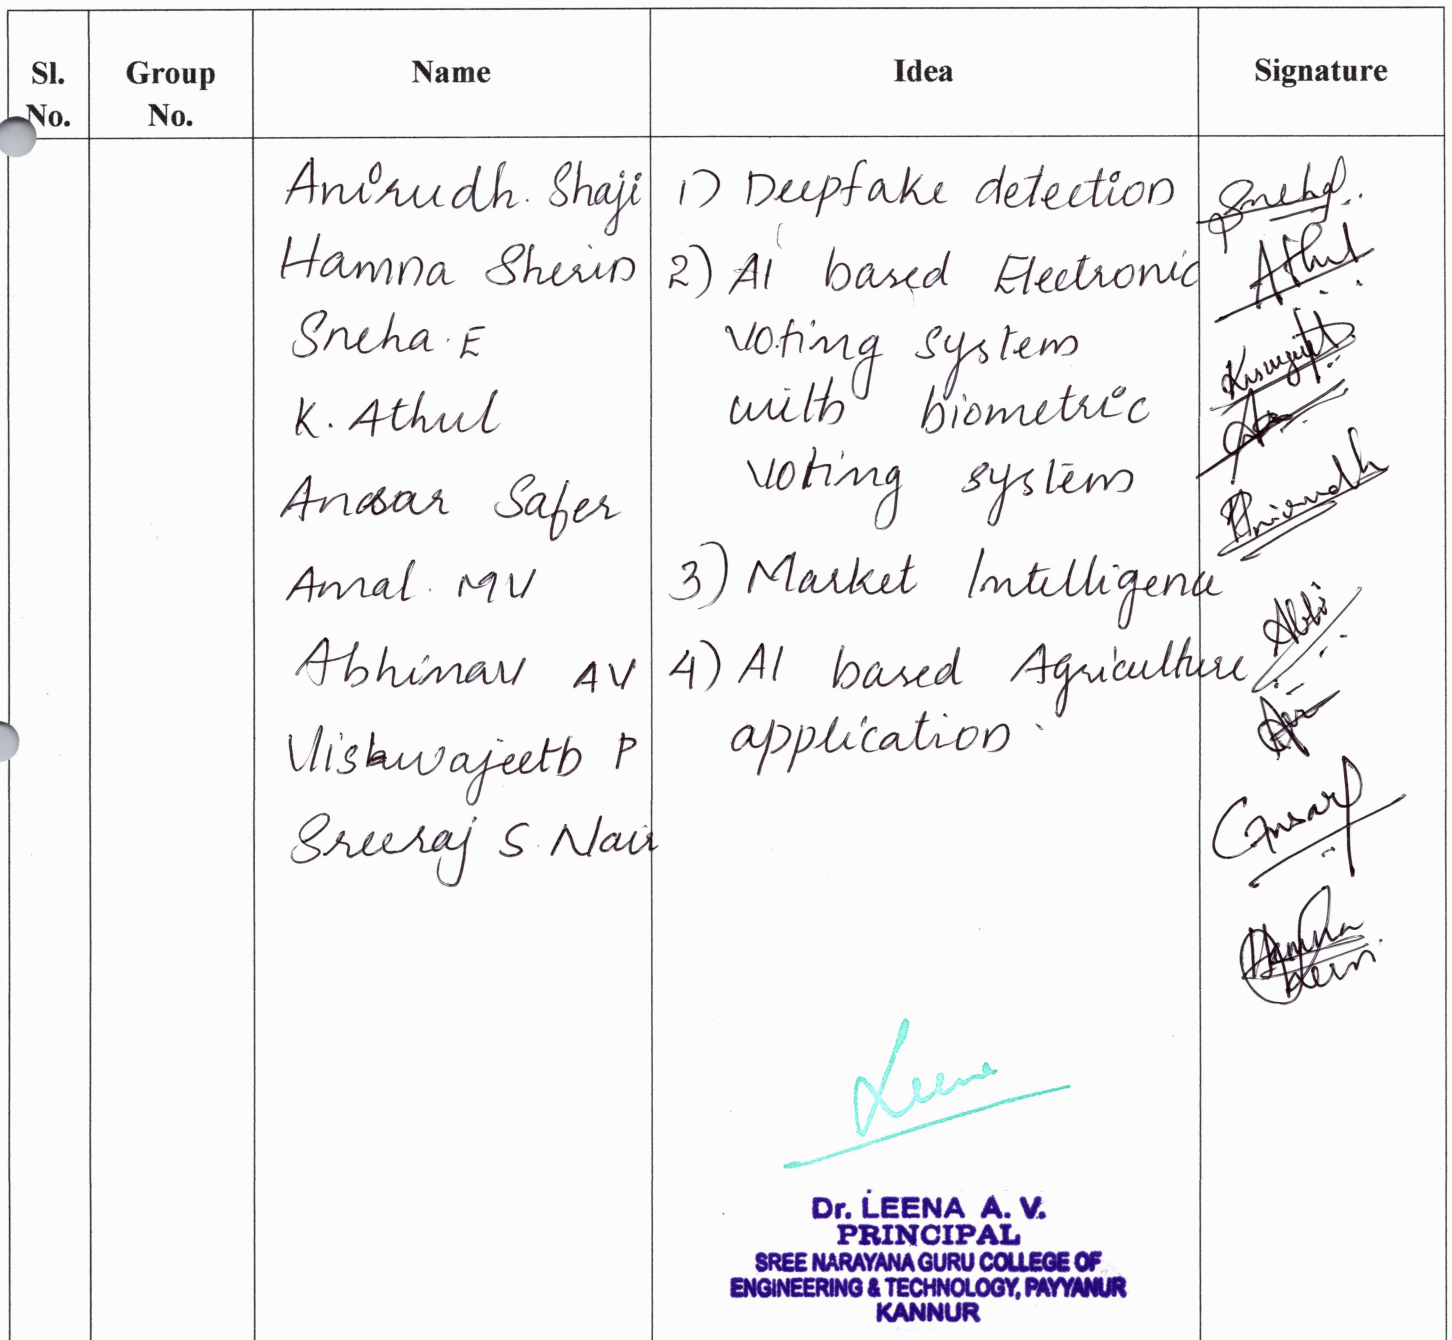 Sl. No.
Group No.
Name
Idea
Signature
Anirudh. Shaji
Hamna Sherin
Sneha. E
K. Athul
Ansar Safer
Amal. MV
Abhinav AV
Vishwajeeth P
Sreeraj S. Nair
1) Deepfake detection
2) AI based Electronic
voting system
with biometric
voting system
3) Market Intelligence
4) AI based Agriculture
application.
Sneha.
Athul
Anirudh
Abhi
Ansar
Hamna
Leena
Dr. LEENA A. V.
PRINCIPAL
SREE NARAYANA GURU COLLEGE OF
ENGINEERING & TECHNOLOGY, PAYYANUR
KANNUR